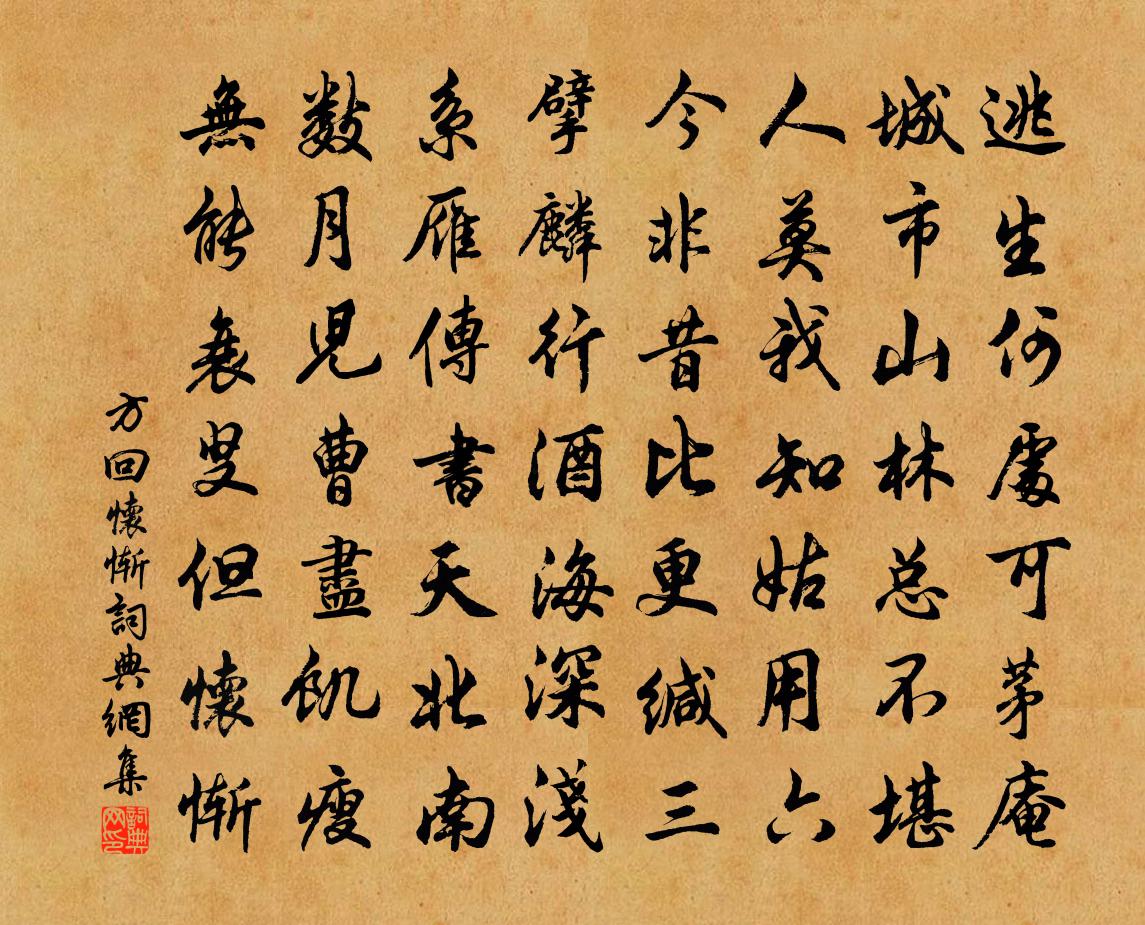 逃生何處可茅庵
城市山林总不堪
人莫我知姑用六
今非昔比更緘三
擘麟行酒海深淺
系雁傳書天北南
数月児曹盡飢瘦
無能衰叟但懷慚
方回懷慚詞典網集
詞典网印